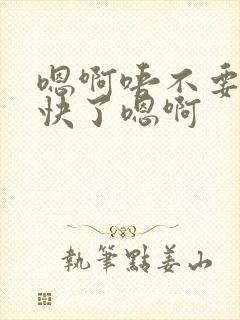 嗯啊唔不要
快了嗯啊
执筆點姜山